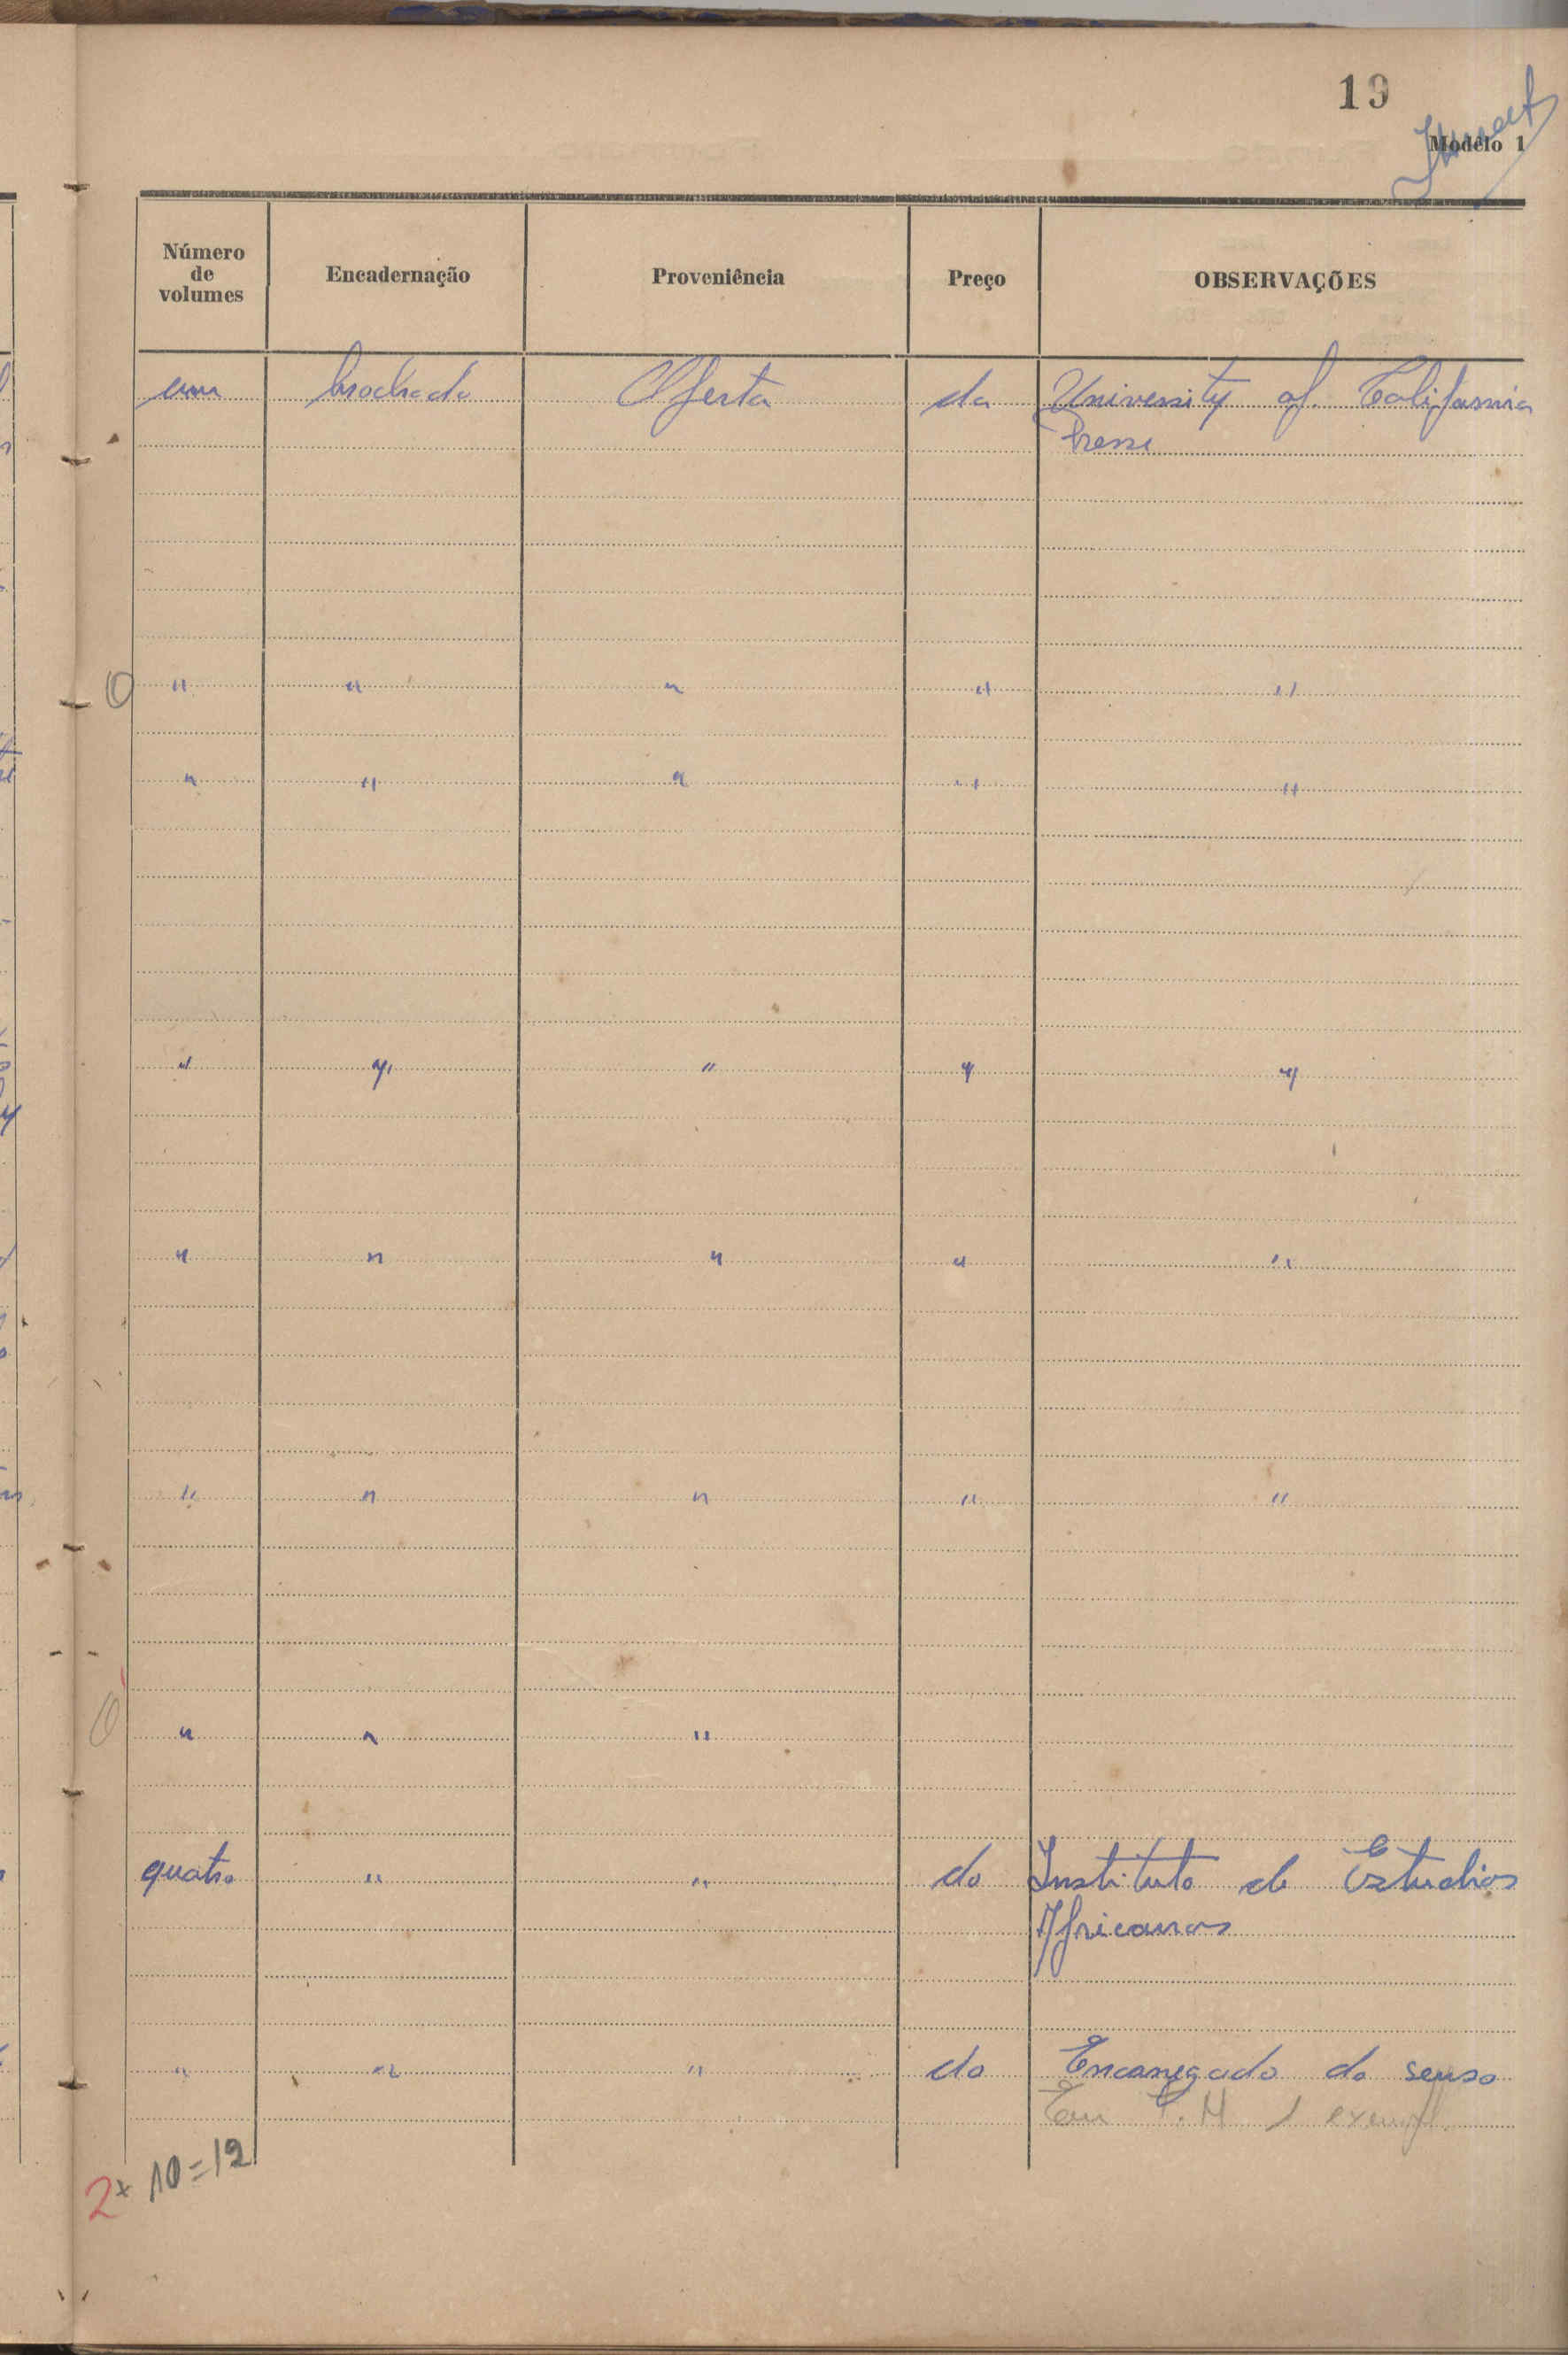 19
Modêlo 1
Número de volumes Encadernação Proveniência Preço OBSERVAÇÕES
um brochado Oferta da University of California
Press
" " " " "
" " " " "
" " " " "
" " " " "
" " " " "
" " "
quatro " " do Instituto de Estudios
Africanos
" " " do Encarregado do senso
Em T. H 1 exempl.
2 + 10 = 12